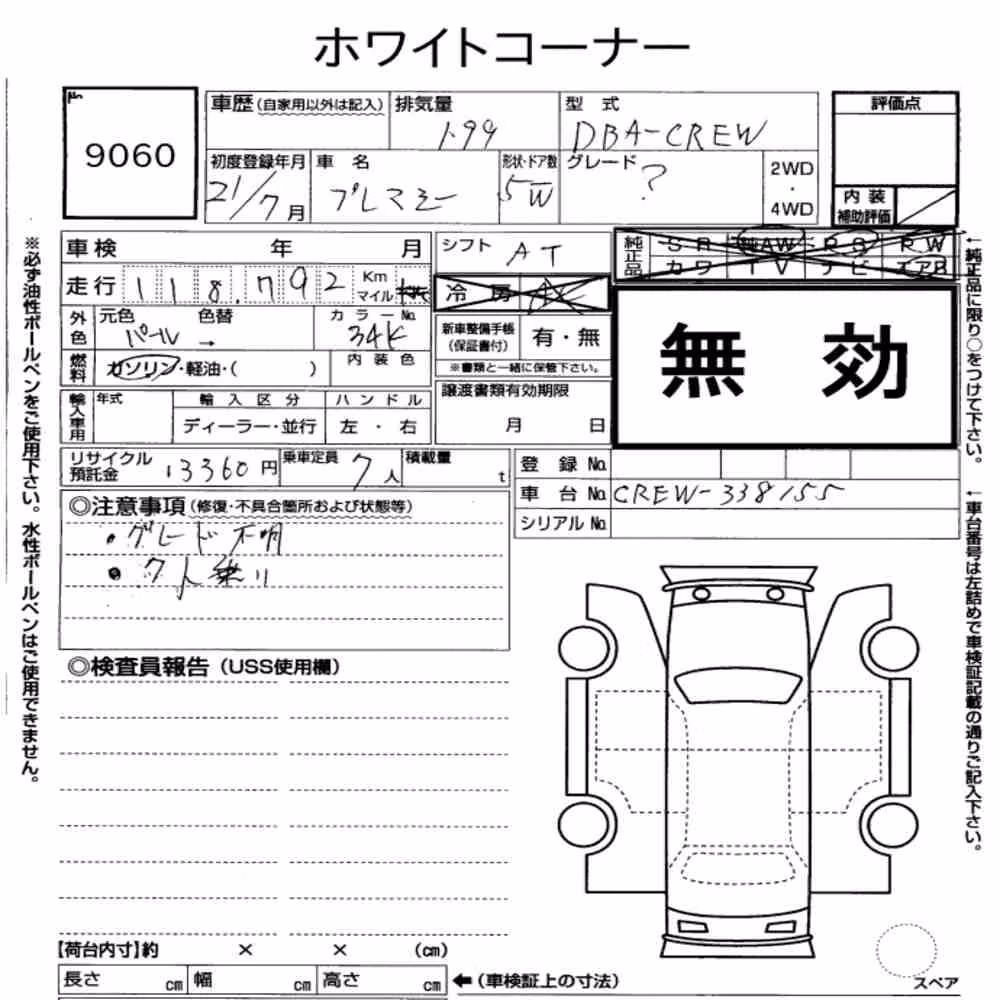 ホワイトコーナー
9060
車歴(自家用以外は記入) 排気量 型式 評価点
1.99 DBA-CREW
初度登録年月 車名 形状・ドア数 グレード 2WD・4WD
21/7月 プレマシー 5W ? 内装補助評価
車検 年 月 シフト AT 純正品 SR 純AW PS PW
カワ TV ナビ エアB
走行 118.792 Km マイル 冷房 AC
外色 元色 色替 カラーNo.
パール → 34K
新車整備手帳(保証書付) 有・無
※書類と一緒に保管下さい。
無効
燃料 ガソリン・軽油・( ) 内装色
輸入車用 年式 輸入区分 ハンドル
ディーラー・並行 左・右
譲渡書類有効期限
月 日
リサイクル預託金 13360円 乗車定員 7人 積載量 t
登録No.
車台No. CREW-338155
シリアルNo.
◎注意事項(修復・不具合箇所および状態等)
・グレード不明
・7人乗り
◎検査員報告(USS使用欄)
【荷台内寸】約 × × (cm)
長さ cm 幅 cm 高さ cm ←(車検証上の寸法)
スペア
※必ず油性ボールペンをご使用下さい。水性ボールペンはご使用できません。
←純正品に限り○をつけて下さい。
←車台番号は左詰めで車検証記載の通りご記入下さい。